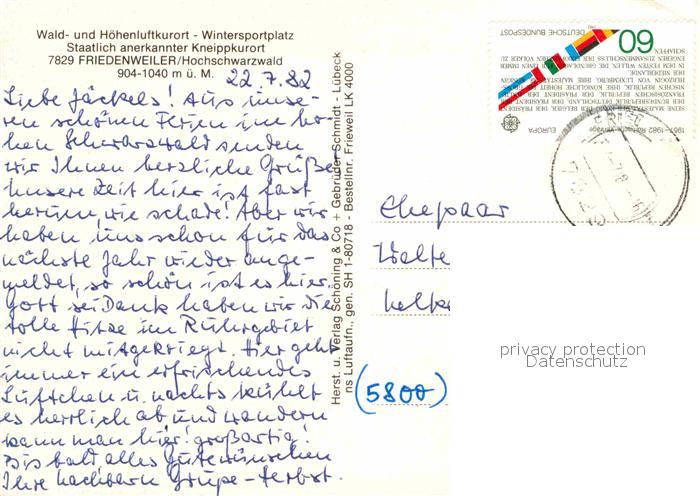 Wald- und Höhenluftkurort - Wintersportplatz
Staatlich anerkannter Kneippkurort
7829 FRIEDENWEILER/Hochschwarzwald
904-1040 m ü. M.
22.7.82
Liebe Jäckels! Aus unse-
ren schönen Ferien im ho-
hen Schwarzwald senden
wir Ihnen herzliche Grüße.
Unsere Zeit hier ist fast
herum, wie schade! Aber wir
haben uns schon für das
nächste Jahr wieder ange-
meldet, so schön ist es hier.
Gott sei Dank haben wir die
tolle Hitze im Ruhrgebiet
nicht mitgekriegt. Hier geht
immer ein erfrischendes
Lüftchen u. nachts kühlt
es herrlich ab und wandern
kann man hier! großartig!
Bis bald alles Gute wünschen
Ihre Nachbarn Grupe-Herbst.
Herst. u. Verlag Schöning & Co + Gebrüder Schmidt - Lübeck
ns Luftaufn., gen. SH 1-80718 - Bestellnr. Frieweil LK 4000
DEUTSCHE BUNDESPOST
60
EUROPA
1957-1982 Römische Verträge
Ehepaar
Walte
(5800)
privacy protection
Datenschutz